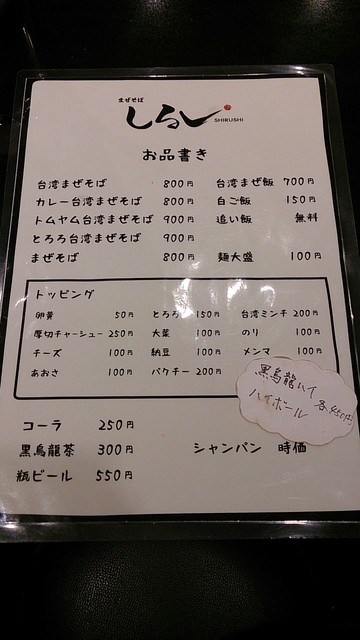 まぜそば
しるし SHIRUSHI
お品書き
台湾まぜそば 800円 台湾まぜ飯 700円
カレー台湾まぜそば 800円 白ご飯 150円
トムヤム台湾まぜそば 900円 追い飯 無料
とろろ台湾まぜそば 900円
まぜそば 800円 麺大盛 100円
トッピング
卵黄 50円 とろろ 150円 台湾ミンチ 200円
厚切チャーシュー 250円 大葉 100円 のり 100円
チーズ 100円 納豆 100円 メンマ 100円
あおさ 100円 パクチー 200円
黒烏龍ハイ
ハイボール 各450円
コーラ 250円
黒烏龍茶 300円 シャンパン 時価
瓶ビール 550円